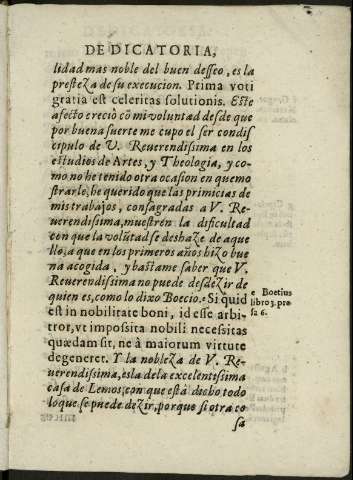 DEDICATORIA,
lidad mas noble del buen desseo, es la
presteza de su execucion. Prima voti
gratia est celeritas solutionis. Este
afecto creciò cõ mi voluntad desde que
por buena suerte me cupo el ser condis
cipulo de V. Reuerendissima en los
estudios de Artes, y Theologia, y co-
mo no he tenido otra ocasion en que mo
strarle, he querido que las primicias de
mis trabajos, consagradas a V. Re-
uerendissima, muestrẽn la dificultad
con que la volũtad se deshaze de aque
llo, a que en los primeros años hizo bue
na acogida, y bastame saber que V.
Reuerendissima no puede desdezir de
quien es, como lo dixo Boecio. e Si quid
est in nobilitate boni, id esse arbi-
tror, vt impossita nobili necessitas
quædam sit, ne à maiorum virtute
degeneret. Y la nobleza de V. Re-
uerendissima, es la de la excelentissima
casa de Lemos, con que està dicho todo
lo que se puede dezir, porque si otra co
sa
e Boetius
libro 3. pro
sa 6.